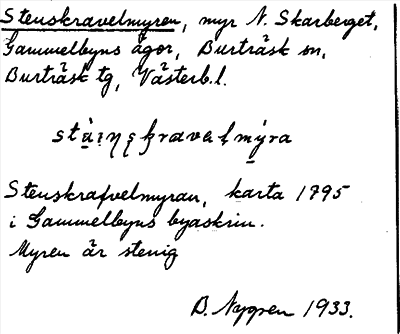 Stenskravelmyren, myr N. Skarberget,
Gammelbyns ägor, Burträsk sn,
Burträsk tg, Västerb.l.
Stenskrafvelmyran, karta 1795
i Gammelbyns byaskrin.
Myren är stenig
B. Nygren 1933.